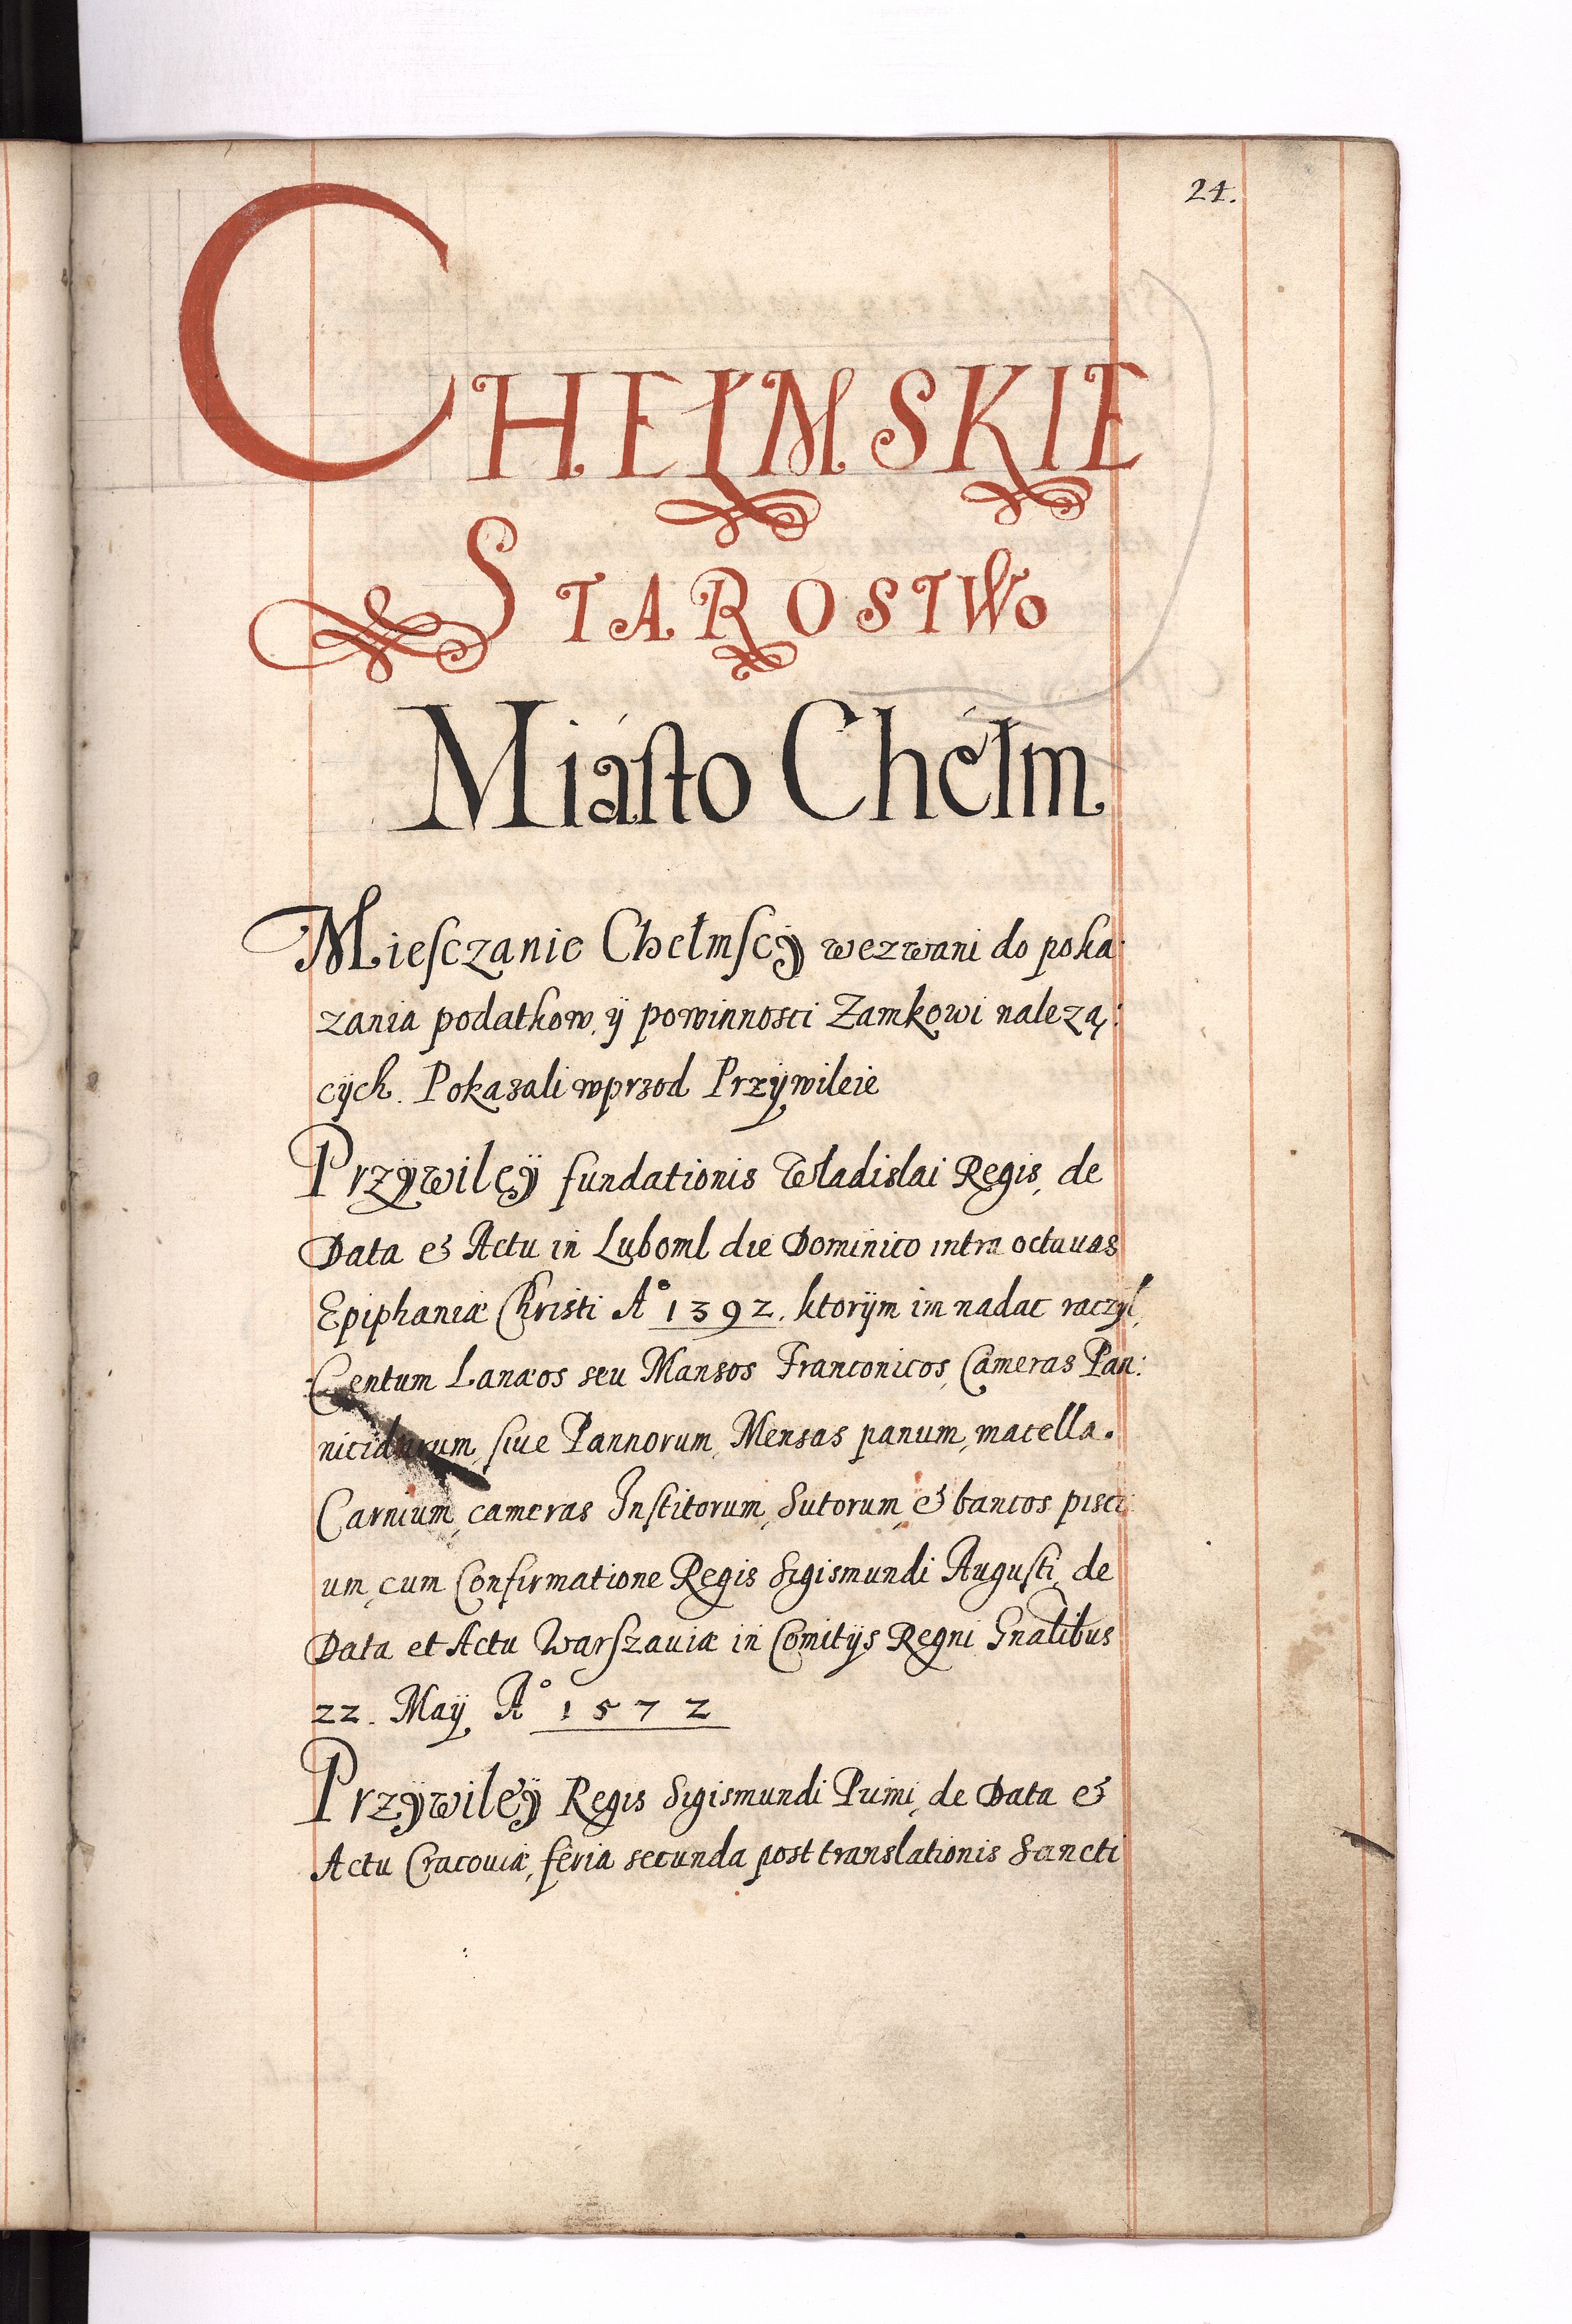 24.
CHEŁMSKIE
STAROSTWO
Miásto Chéłm
Miesczanie Chełmscÿ wezwani do poka:
zania podatkow, ÿ powinnosci Zamkowi nalezą:
cÿch. Pokazali wprzod Przÿwileie
Przÿwileÿ fundationis Władislai Regis, de
Data & Actu in Luboml die Dominico intra octauas
Epiphaniæ Christi A° 1392. ktorÿm im nadac raczÿł,
Centum Lanæos seu Mansos Franconicos, Cameras Pan:
nicidarum, siue Pannorum, Mensas panum, macella.
Carnium, cameras Institorum, Sutorum, & bancos pisci
um, cum Confirmatione Regis Sigismundi Augusti, de
Data et Actu Warszauiæ in Comitÿs Regni Gnalibus
22. Maÿ A° 1572
Przÿwileÿ Regis Sigismundi Primi, de Data &
Actu Cracouiæ, feria secunda post translationis Sancti